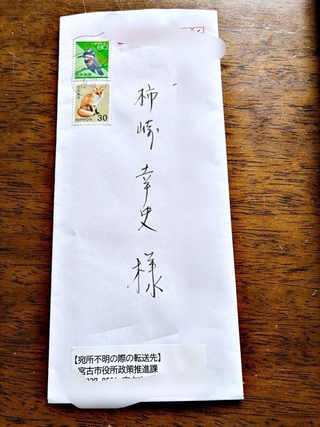 80
NIPPON 30
柿崎幸史様
【宛所不明の際の転送先】
宮古市役所政策推進課